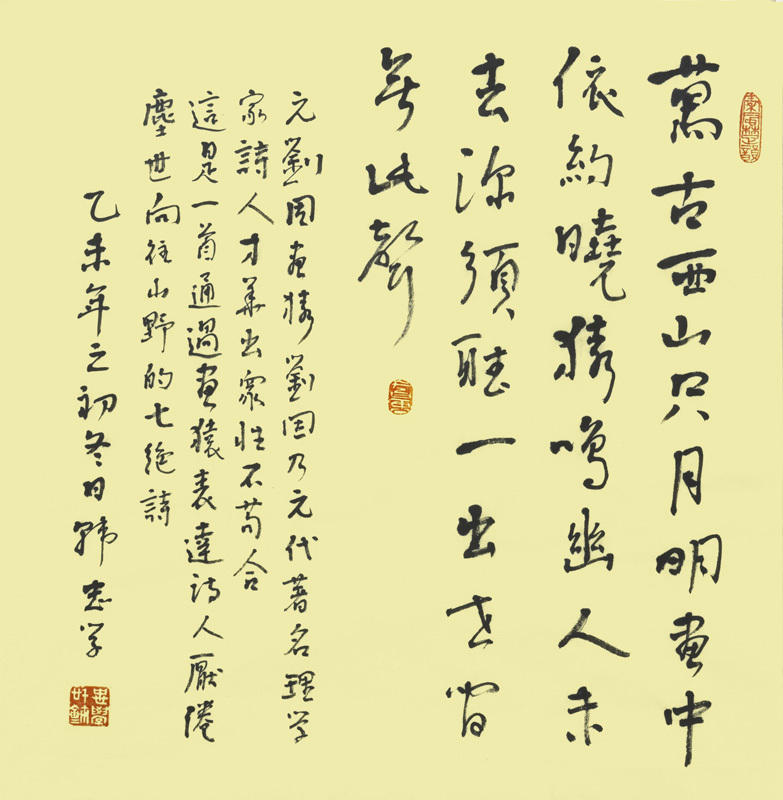 萬古西山只月明畫中
依約曉猿鳴幽人未
去深須聽一出世間
無此聲
元劉因畫猿劉因乃元代著名理学
家詩人才華出衆性不苟合
這是一首通過畫猿表達詩人厭倦
塵世向往山野的七絶詩
乙未年之初冬日韩忠学